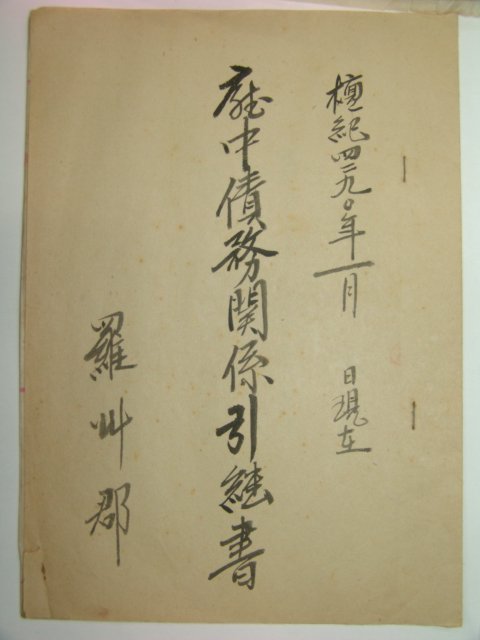 檀紀四二九〇年一月　日現在
庁中債務関係引継書
羅州郡